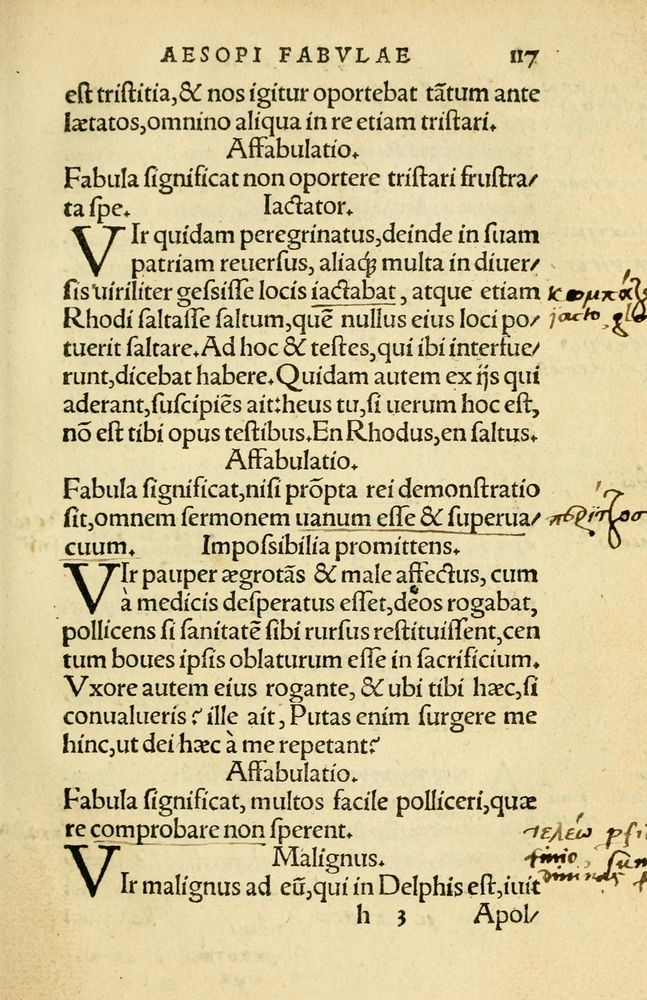 AESOPI FABVLAE 117
est tristitia,& nos igitur oportebat tãtum ante
lætatos,omnino aliqua in re etiam tristari.
Affabulatio.
Fabula significat non oportere tristari frustra/
ta spe. Iactator.
VIr quidam peregrinatus,deinde in suam
patriam reuersus, aliaqꝫ multa in diuer/
sis uiriliter gessisse locis iactabat, atque etiam κομπάζω
Rhodi saltasse saltum,quẽ nullus eius loci po/ jacto,
tuerit saltare.Ad hoc & testes,qui ibi interfue/
runt,dicebat habere.Quidam autem ex ijs qui
aderant,suscipiẽs ait:heus tu,si uerum hoc est,
nõ est tibi opus testibus.En Rhodus,en saltus.
Affabulatio.
Fabula significat,nisi prõpta rei demonstratio
sit,omnem sermonem uanum esse & superua/
cuum. Impossibilia promittens.
VIr pauper ægrotãs & male affectus, cum
à medicis desperatus esset,deos rogabat,
pollicens si sanitatẽ sibi rursus restituissent,cen
tum boues ipsis oblaturum esse in sacrificium.
Vxore autem eius rogante, & ubi tibi hæc,si
conualueris? ille ait, Putas enim surgere me
hinc,ut dei hæc à me repetant?
Affabulatio.
Fabula significat, multos facile polliceri,quæ
re comprobare non sperent. τελέω
Malignus. finio,
VIr malignus ad eũ,qui in Delphis est,iuit
h 3 Apol/